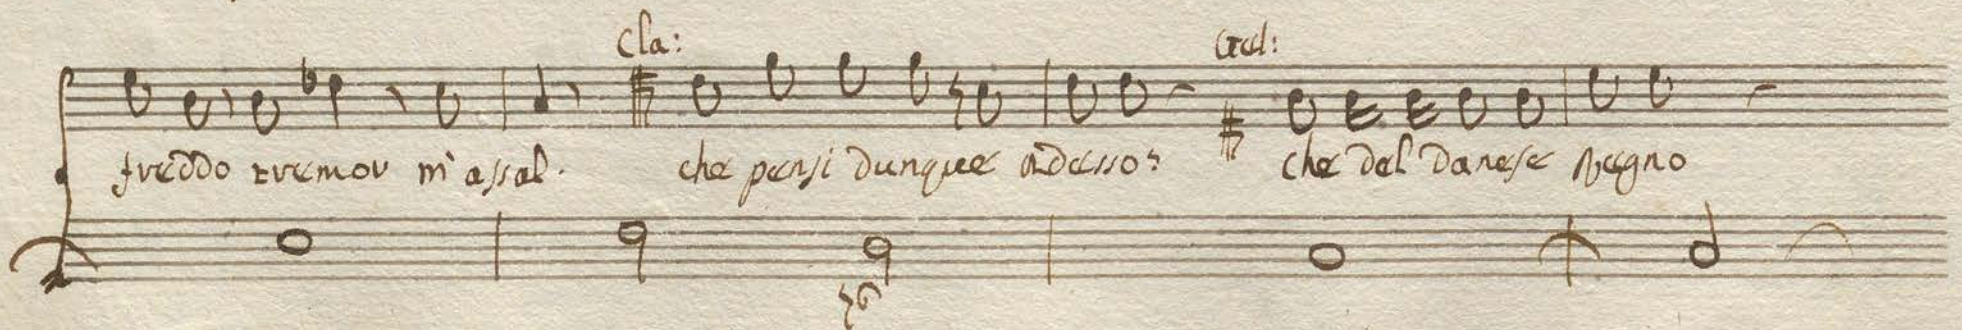 Cla: Gel:
freddo tremor m'assal. che pensi dunque adesso? che del danese Regno
76